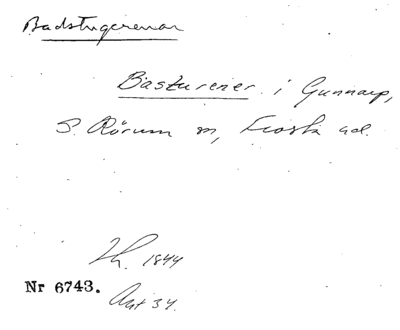 Badstugerenar
Basturener i Gunnarp,
S. Rörum m, Frosta hd.
Th. 1844
Nr 6743.
Ant 34.